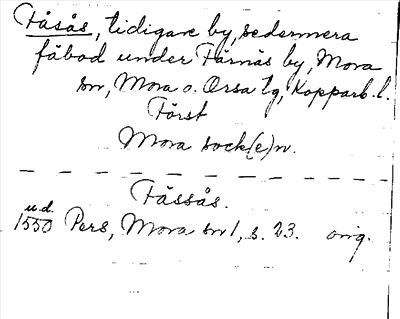 Fåsås, tidigare by, sedermera
fäbod under Färnäs by, Mora
sn, Mora o. Orsa tg, Kopparb. l.
Först
Mora sock(e)n.
Fåssås.
u.d.
1550 Pers, Mora sn 1, s. 23. orig.